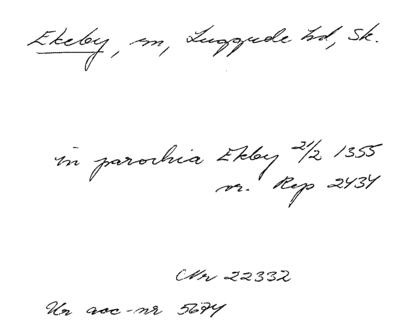 Ekeby, sn, Luggude hd, Sk.
in parochia Ekby 21/2 1355
or. Rep 2434
Nr 22332
Ur acc-nr 5674